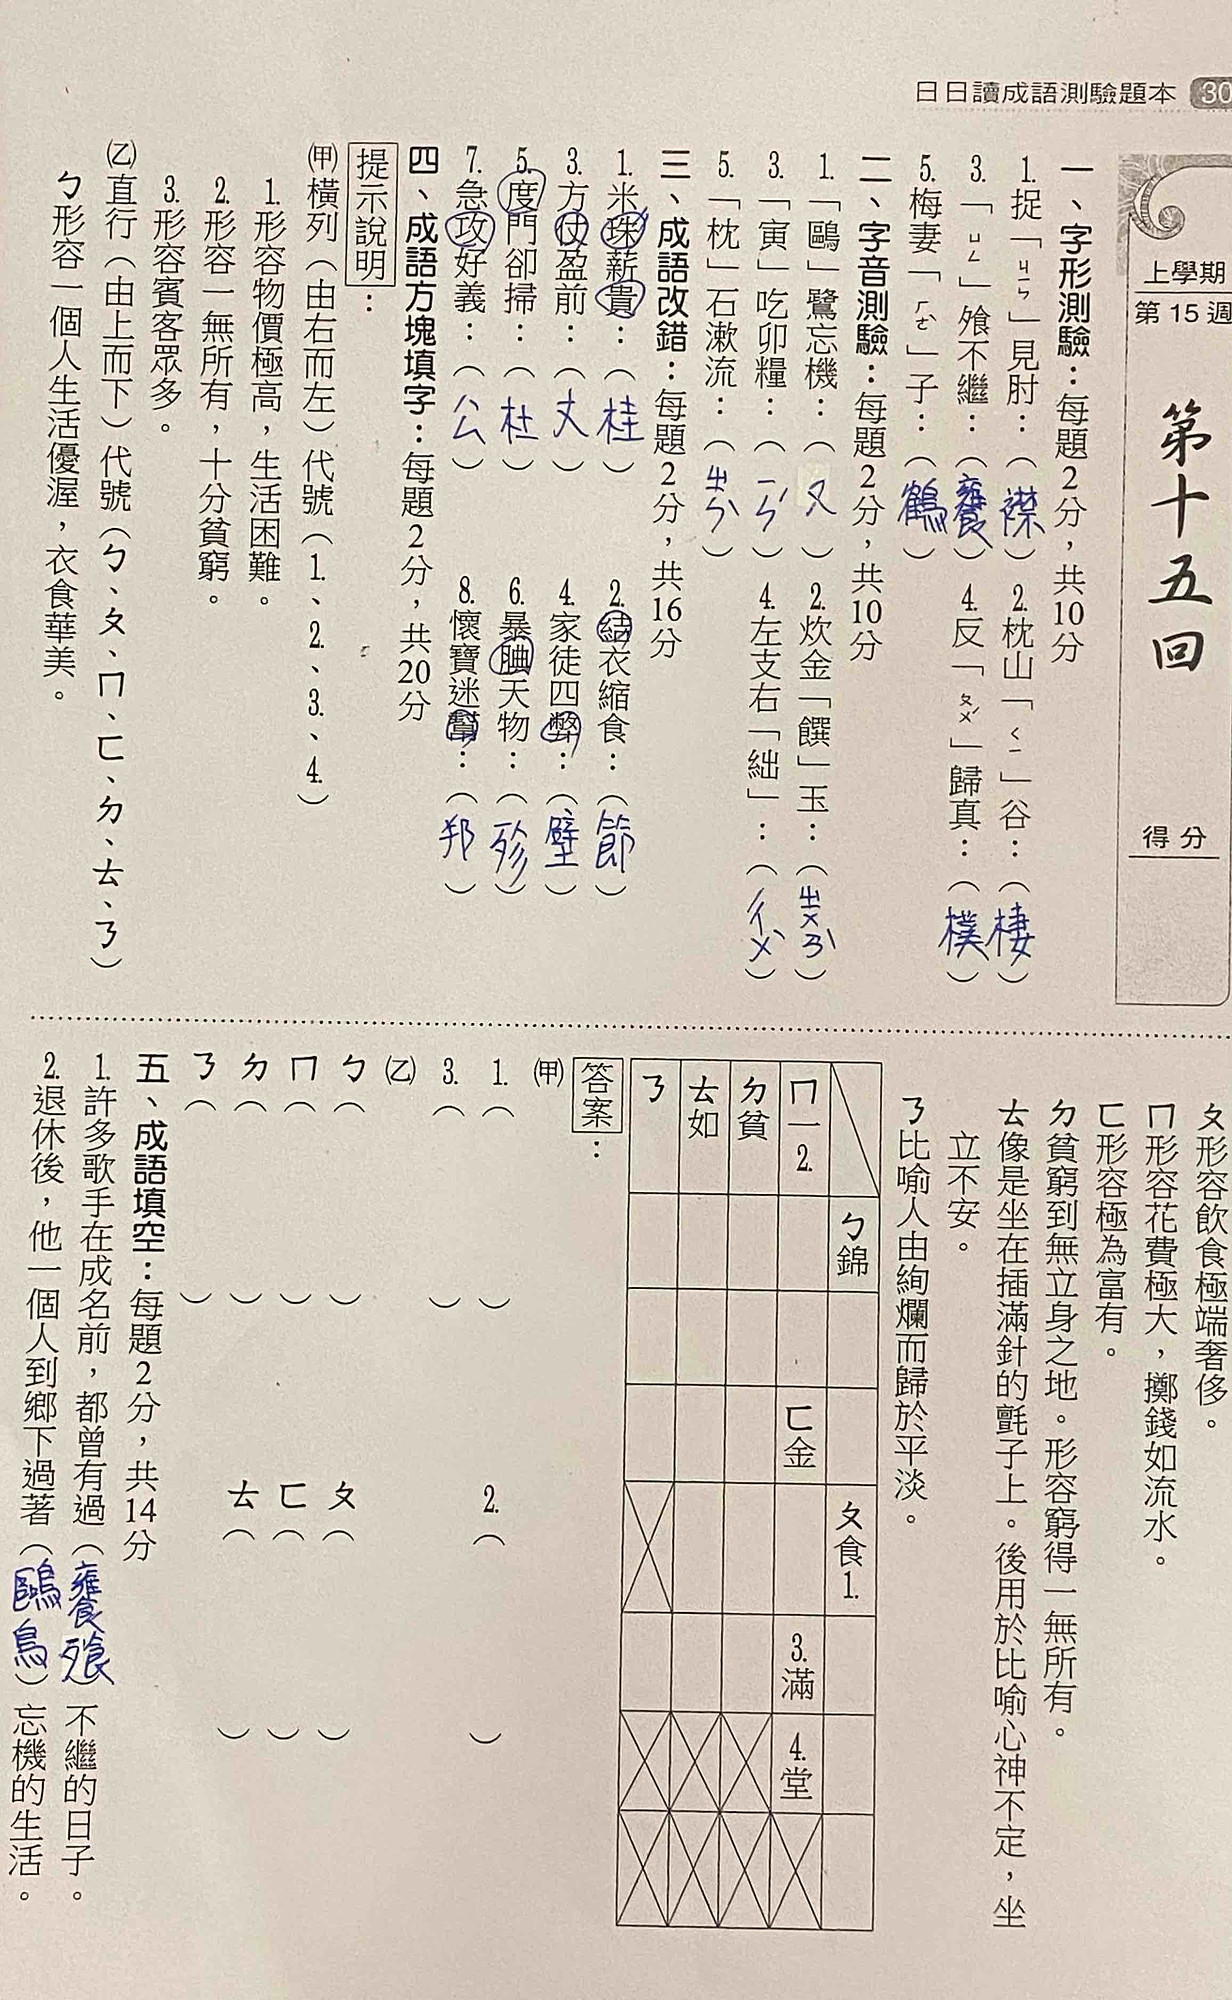 日日讀成語測驗題本 30
上學期
第15週
第十五回
得分
一、字形測驗：每題2分，共10分
1.捉「ㄐㄧㄣ」見肘：（襟） 2.枕山「ㄑㄧ」谷：（棲）
3.「ㄩㄥ」飧不繼：（饔） 4.反「ㄆㄨˊ」歸真：（樸）
5.梅妻「ㄏㄜˋ」子：（鶴）
二、字音測驗：每題2分，共10分
1.「鷗」鷺忘機：（ㄡ） 2.炊金「饌」玉：（ㄓㄨㄢˋ）
3.「寅」吃卯糧：（ㄧㄣˊ） 4.左支右「絀」：（ㄔㄨˋ）
5.「枕」石漱流：（ㄓㄣˋ）
三、成語改錯：每題2分，共16分
1.米珠薪貴：（桂） 2.結衣縮食：（節）
3.方仗盈前：（丈） 4.家徒四弊：（壁）
5.度門卻掃：（杜） 6.暴腆天物：（殄）
7.急攻好義：（公） 8.懷寶迷幫：（邦）
四、成語方塊填字：每題2分，共20分
提示說明：
㈙橫列（由右而左）代號（1.、2.、3.、4.）
1.形容物價極高，生活困難。
2.形容一無所有，十分貧窮。
3.形容賓客眾多。
㈚直行（由上而下）代號（ㄅ、ㄆ、ㄇ、ㄈ、ㄉ、ㄊ、ㄋ）
ㄅ形容一個人生活優渥，衣食華美。
ㄆ形容飲食極端奢侈。
ㄇ形容花費極大，擲錢如流水。
ㄈ形容極為富有。
ㄉ貧窮到無立身之地。形容窮得一無所有。
ㄊ像是坐在插滿針的氈子上。後用於比喻心神不定，坐
立不安。
ㄋ比喻人由絢爛而歸於平淡。
ㄅ錦 ㄆ食1.
ㄇ一2. ㄈ金 3.滿 4.堂
ㄉ貧
ㄊ如
ㄋ
答案：
㈙
1.（ ） 2.（ ）
3.（ ）
㈚
ㄅ（ ） ㄆ（ ）
ㄇ（ ） ㄈ（ ）
ㄉ（ ） ㄊ（ ）
ㄋ（ ）
五、成語填空：每題2分，共14分
1.許多歌手在成名前，都曾有過（饔飧）不繼的日子。
2.退休後，他一個人到鄉下過著（鷗鳥）忘機的生活。